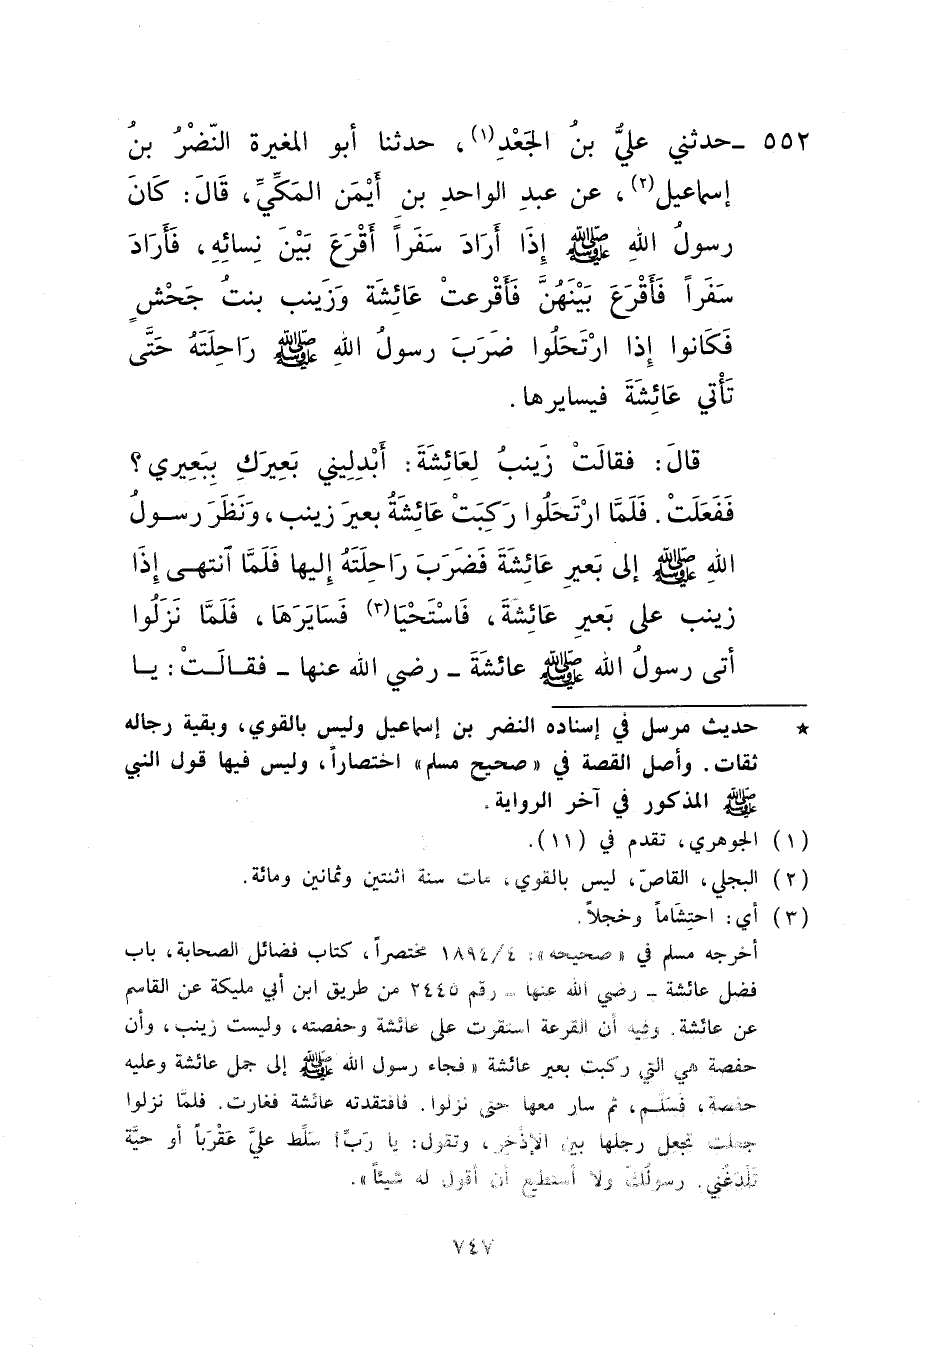 ٥٥٢ ـ حدثني عليُّ بنُ الجَعْدِ(١)، حدثنا أبو المغيرة النّضْرُ بنُ
إسماعيل(٢)، عن عبدِ الواحدِ بنِ أَيْمَن المَكِّيِّ، قَالَ: كَانَ
رسولُ اللهِ ﷺ إِذَا أَرَادَ سَفَراً أَقْرَعَ بَيْنَ نِسائِهِ، فَأَرَادَ
سَفَراً فَأَقْرَعَ بَيْنَهُنَّ فَأَقْرعتْ عَائِشَة وَزَينب بنتُ جَحْشٍ
فَكَانوا إِذا ارْتَحَلُوا ضرَبَ رسولُ اللهِ ﷺ رَاحِلَتَهُ حَتَّى
تَأْتي عَائِشَةَ فيسايرها.
قالَ: فقالَتْ زَينبُ لِعَائِشَةَ: أَبْدِلِيني بَعِيرَكِ بِبَعِيري؟
فَفَعَلَتْ. فَلَمَّا ارْتَحَلُوا رَكِبَتْ عَائِشَةُ بعيرَ زينب، وَنَظَرَ رسولُ
اللهِ ﷺ إلى بَعيرِ عَائِشَةَ فَضَرَبَ رَاحِلَتَهُ إليها فَلَمَّا ٱنتهى إِذَا
زينب على بَعيرِ عائِشةَ، فَاسْتَحْيَا(٣) فَسَايَرَهَا، فَلَمَّا نَزَلُوا
أتى رسولُ الله ﷺ عائشَةَ ـ رضي الله عنها ـ فقالَتْ: يا
★ حديث مرسل في إسناده النضر بن إسماعيل وليس بالقوي، وبقية رجاله
ثقات. وأصل القصة في «صحيح مسلم» اختصاراً، وليس فيها قول النبي
ﷺ المذكور في آخر الرواية.
(١) الجوهري، تقدم في (١١).
(٢) البجلي، القاصّ، ليس بالقوي، مات سنة اثنتين وثمانين ومائة.
(٣) أي: احتشاماً وخجلاً.
أخرجه مسلم في «صحيحه»: ١٨٩٤/٤ مختصراً، كتاب فضائل الصحابة، باب
فضل عائشة ـ رضي الله عنها ـ رقم ٢٤٤٥ من طريق ابن أبي مليكة عن القاسم
عن عائشة. وفيه أن القرعة استقرت على عائشة وحفصته، وليست زينب، وأن
حفصة هي التي ركبت بعير عائشة «فجاء رسول الله ﷺ إلى جمل عائشة وعليه
حفصة، فسَلّم، ثم سار معها حتى نزلوا. فافتقدته عائشة فغارت. فلمَّا نزلوا
جعلت تجعل رجلها بين الإِذْخر، وتقول: يا ربِّ! سَلِّط عليَّ عَقْرَباً أو حيَّة
تَلْدَغُني. رسولُك ولا أستطيع أن أقول له شيئاً».
٧٤٧